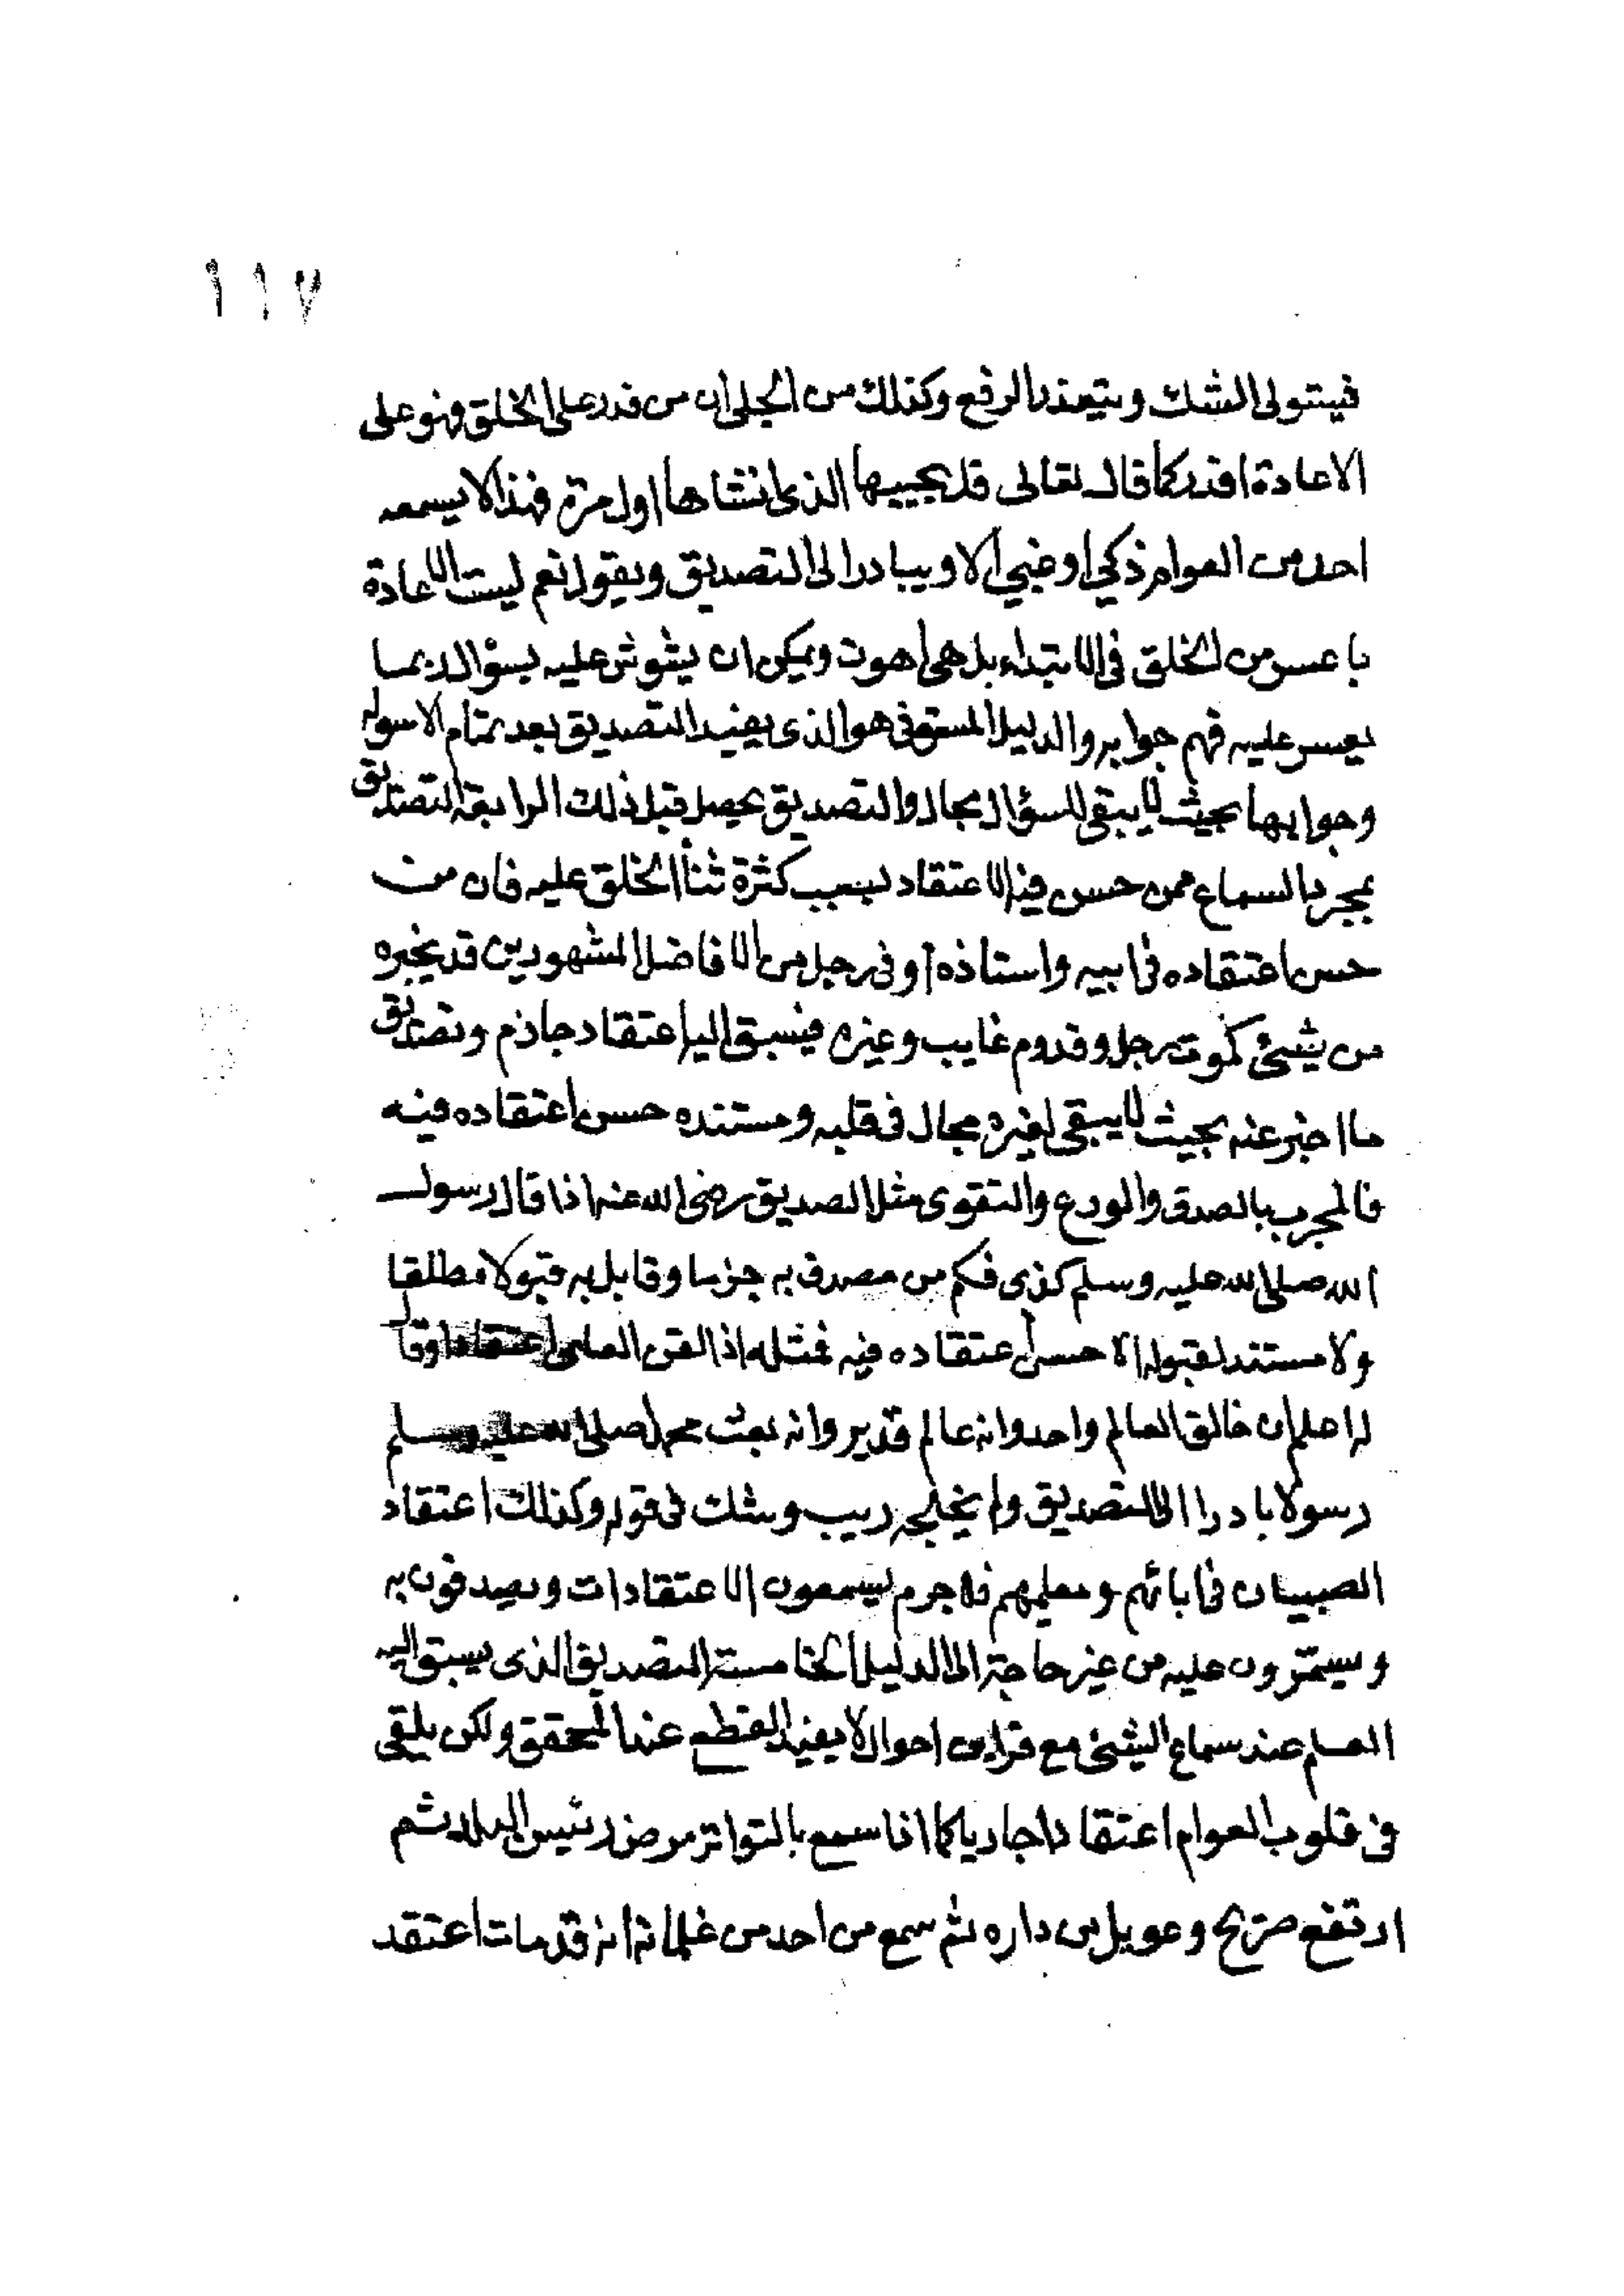 ١١٧
فيتولى الشك ويتعذر الرفع وكذلك من الجلى ان من قدر على الخلق فهو على
الاعادة اقدر كما قال تعالى قل يحييها الذى انشاها اول مرة فهذا لا يسمعه
احد من العوام ذكي او غبي الا ويبادر الى التصديق ويقول نعم ليست الاعادة
باعسر من الخلق فى الابتداء بل هى اهون ويمكن ان يشوش عليه بسؤال ربما
يعسر عليه فهم جوابه والدليل المستوفى هو الذى يفيد التصديق بعد تمام الاسوله
وجوابها بحيث لا يبقى للسؤال مجال والتصديق يحصل قبل ذلك الرابعة التصديق
بمجرد السماع ممن حسن فيه الاعتقاد بسبب كثرة ثنأ الخلق عليه فان من
حسن اعتقاده فى ابيه واستاذه او فى رجل من الافاضل المشهورين قد يخبره
من شيئ كموت رجل وقدوم غايب وغيره فيسبق اليه اعتقاد جازم وتصديق
ما اخبر عنه بحيث لا يبقى لغيره مجال فى قلبه ومستنده حسن اعتقاده فيه
فالمجرب بالصدق والورع والتقوى مثل الصديق رضى الله عنه اذا قال رسول
الله صلى الله عليه وسلم كذى فكم من مصدق به جزما وقابل به قبولا مطلقا
ولا مستند لقبوله الا حسن اعتقاده فيه فمثله اذا القى العامى اعتقادا وقال
له اعلم ان خالق العالم واحد وانه عالم قدير وانه بعث محمدا صلى الله عليه وسلم
رسولا بادر الى التصديق ولم يخلجه ريب وشك فى قوله وكذلك اعتقاد
الصبيان فى ابائهم ومعلمهم فلا جرم يسمعون الاعتقادات ويصدقون به
ويستمرون عليه من غير حاجة الى الدليل الخامسة التصديق الذى يسبق اليه
العلم عند سماع الشيئ مع قراين احوال لا يفيد القطع عند المحقق ولكن يلقى
فى قلوب العوام اعتقادا جاريا كما اذا سمع بالتواتر مرض رئيس البلد ثم
ارتفع صريخ وعويل من داره ثم سمع من احد من غلمانه انه قد مات اعتقد